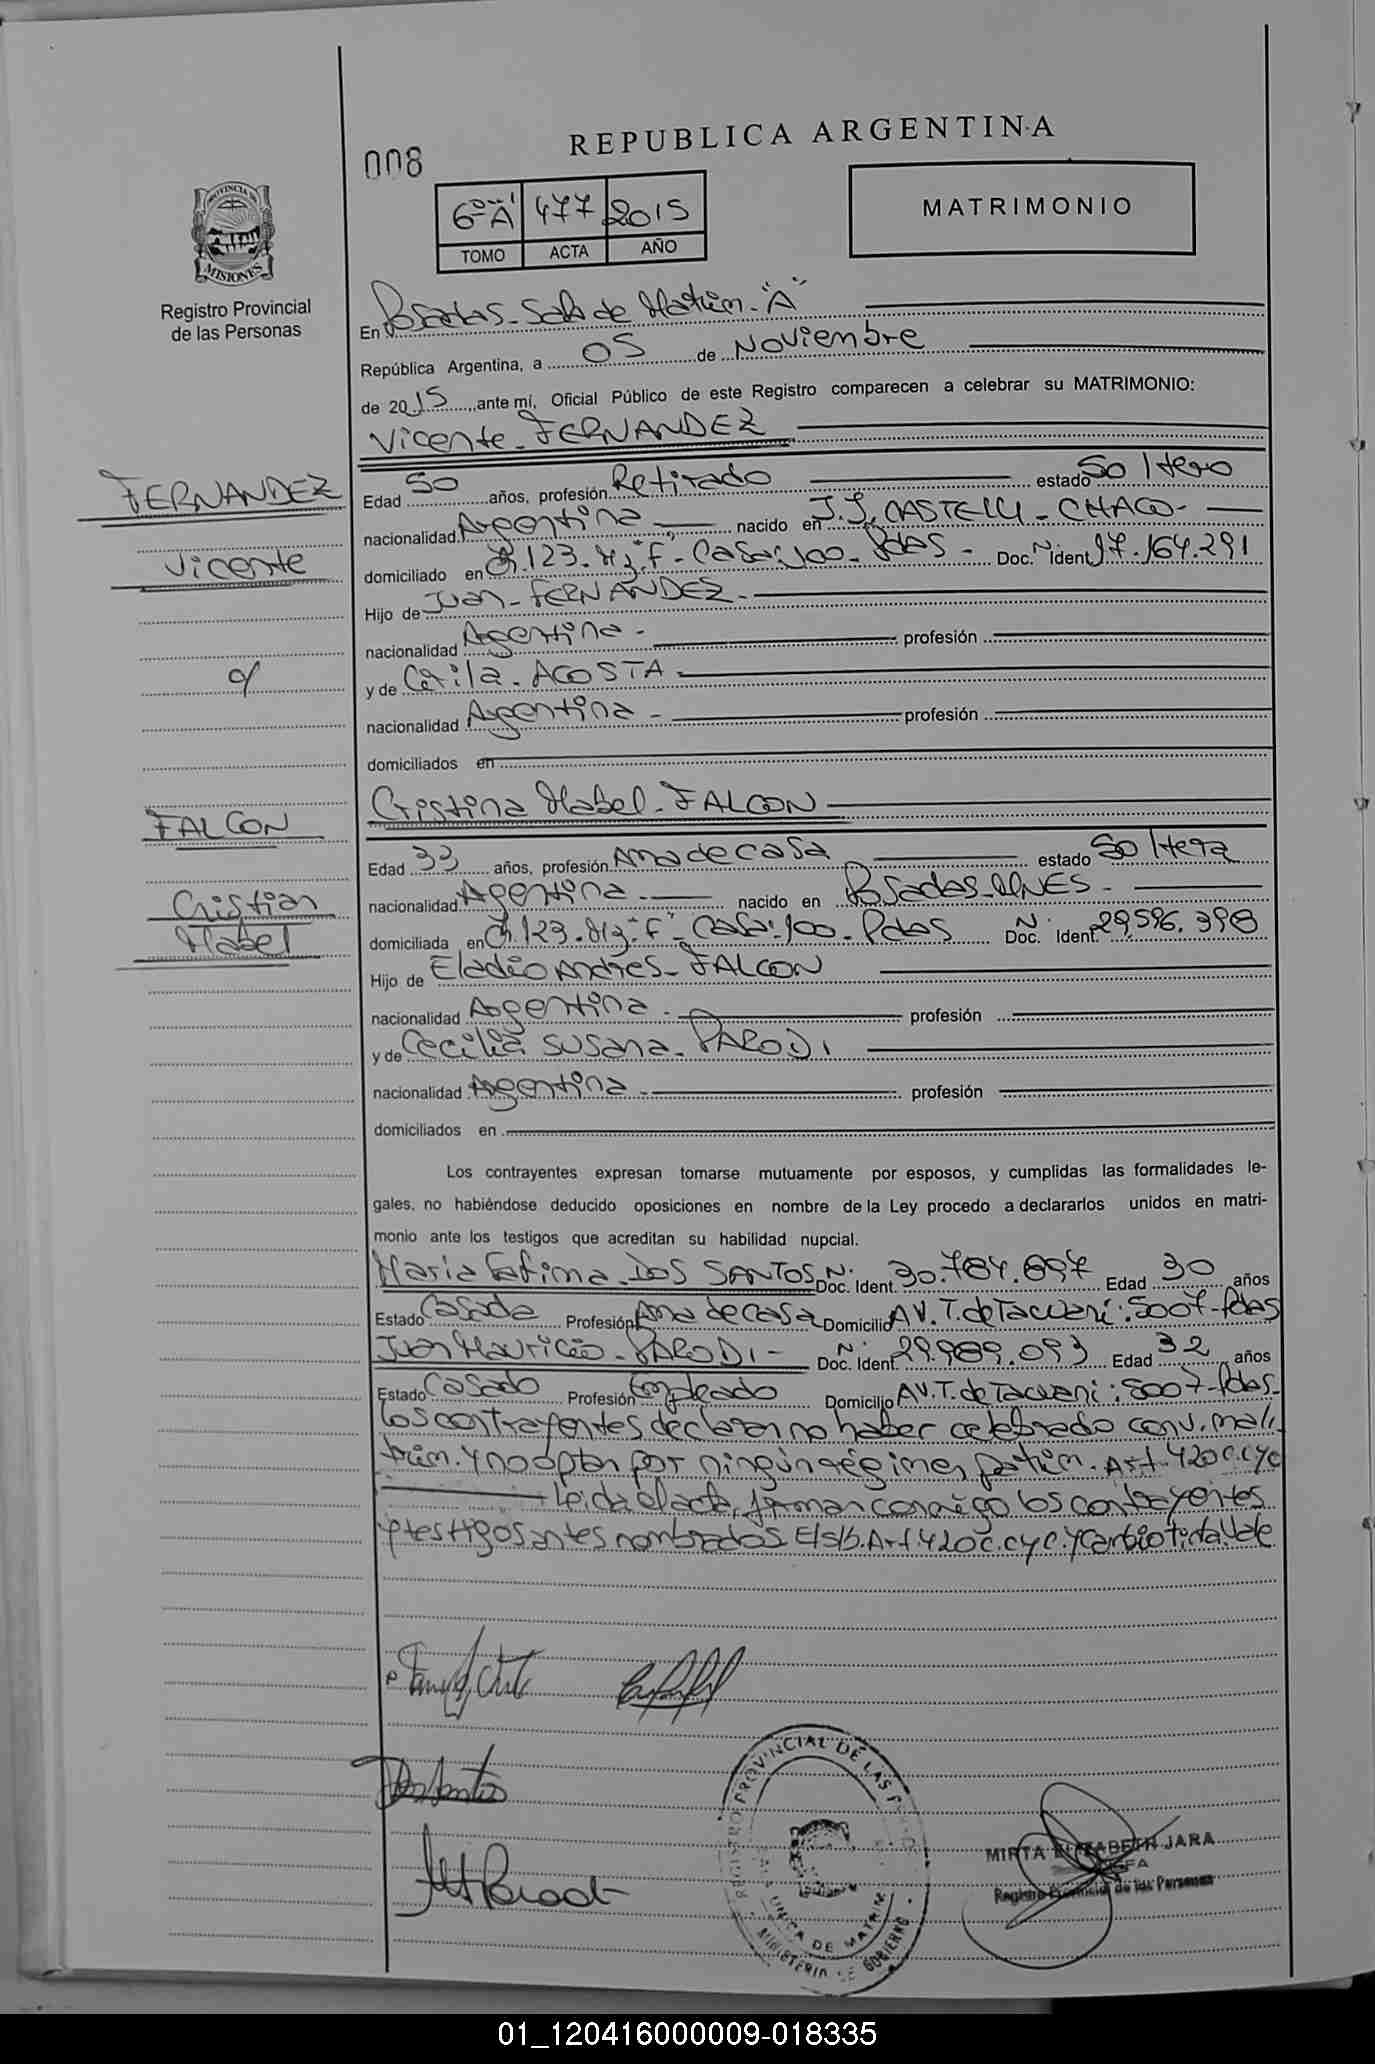 REPUBLICA ARGENTINA
008
6º "A" 477 2015
TOMO ACTA AÑO
MATRIMONIO
PROVINCIA DE
MISIONES
Registro Provincial
de las Personas
En Posadas - Sala de Matrim. "A"
República Argentina, a 05 de Noviembre
de 2015, ante mí, Oficial Público de este Registro comparecen a celebrar su MATRIMONIO:
Vicente - FERNANDEZ
FERNANDEZ
Vicente
c/
FALCON
Cristian
Mabel
Edad 50 años, profesión Retirado estado Soltero
nacionalidad Argentina nacido en J.J. CASTELLI - CHACO -
domiciliado en Ch. 123 - Mz: "F" - Casa: 100 - Pdas - Doc. Nº Ident 17.164.291
Hijo de Juan - FERNANDEZ -
nacionalidad Argentina - profesión
y de Cirila - ACOSTA -
nacionalidad Argentina - profesión
domiciliados en
Cristina Mabel - FALCON
Edad 33 años, profesión Ama de casa estado Soltera
nacionalidad Argentina - nacido en Posadas - MNES -
domiciliada en Ch. 123 - Mz: "F" - Casa: 100 - Pdas Doc. Nº Ident. 29.596.398
Hijo de Eladio Andres - FALCON
nacionalidad Argentina - profesión
y de Cecilia Susana - PARODI
nacionalidad Argentina - profesión
domiciliados en
Los contrayentes expresan tomarse mutuamente por esposos, y cumplidas las formalidades le-
gales, no habiéndose deducido oposiciones en nombre de la Ley procedo a declararlos unidos en matri-
monio ante los testigos que acreditan su habilidad nupcial.
Maria Fatima - DOS SANTOS Doc. Nº Ident. 30.784.897 Edad 30 años
Estado Casada Profesión Ama de casa Domicilio AV. T. de Tacuarí: 5007 - Pdas
Juan Mauricio - PARODI - Doc. Nº Ident. 29.989.093 Edad 32 años
Estado Casado Profesión Empleado Domicilio AV. T. de Tacuari: 5007 - Pdas -
Los contrayentes declaran no haber celebrado conv. mat.
trim. Y no optan por ningún régimen patrim. Art. 420 C.CyC
Leida el acta, firman conmigo los contrayentes
y testigos antes nombrados E/S/b. Art. 420 C.CyC. y Cambio tinta. Vale
DosSantos
PROVINCIAL DE LAS
UNICA DE MATRIM
MINISTERIO DE GOBIERNO
MIRTA ELIZABETH JARA
JEFA
Registro Provincial de las Personas
01_120416000009-018335